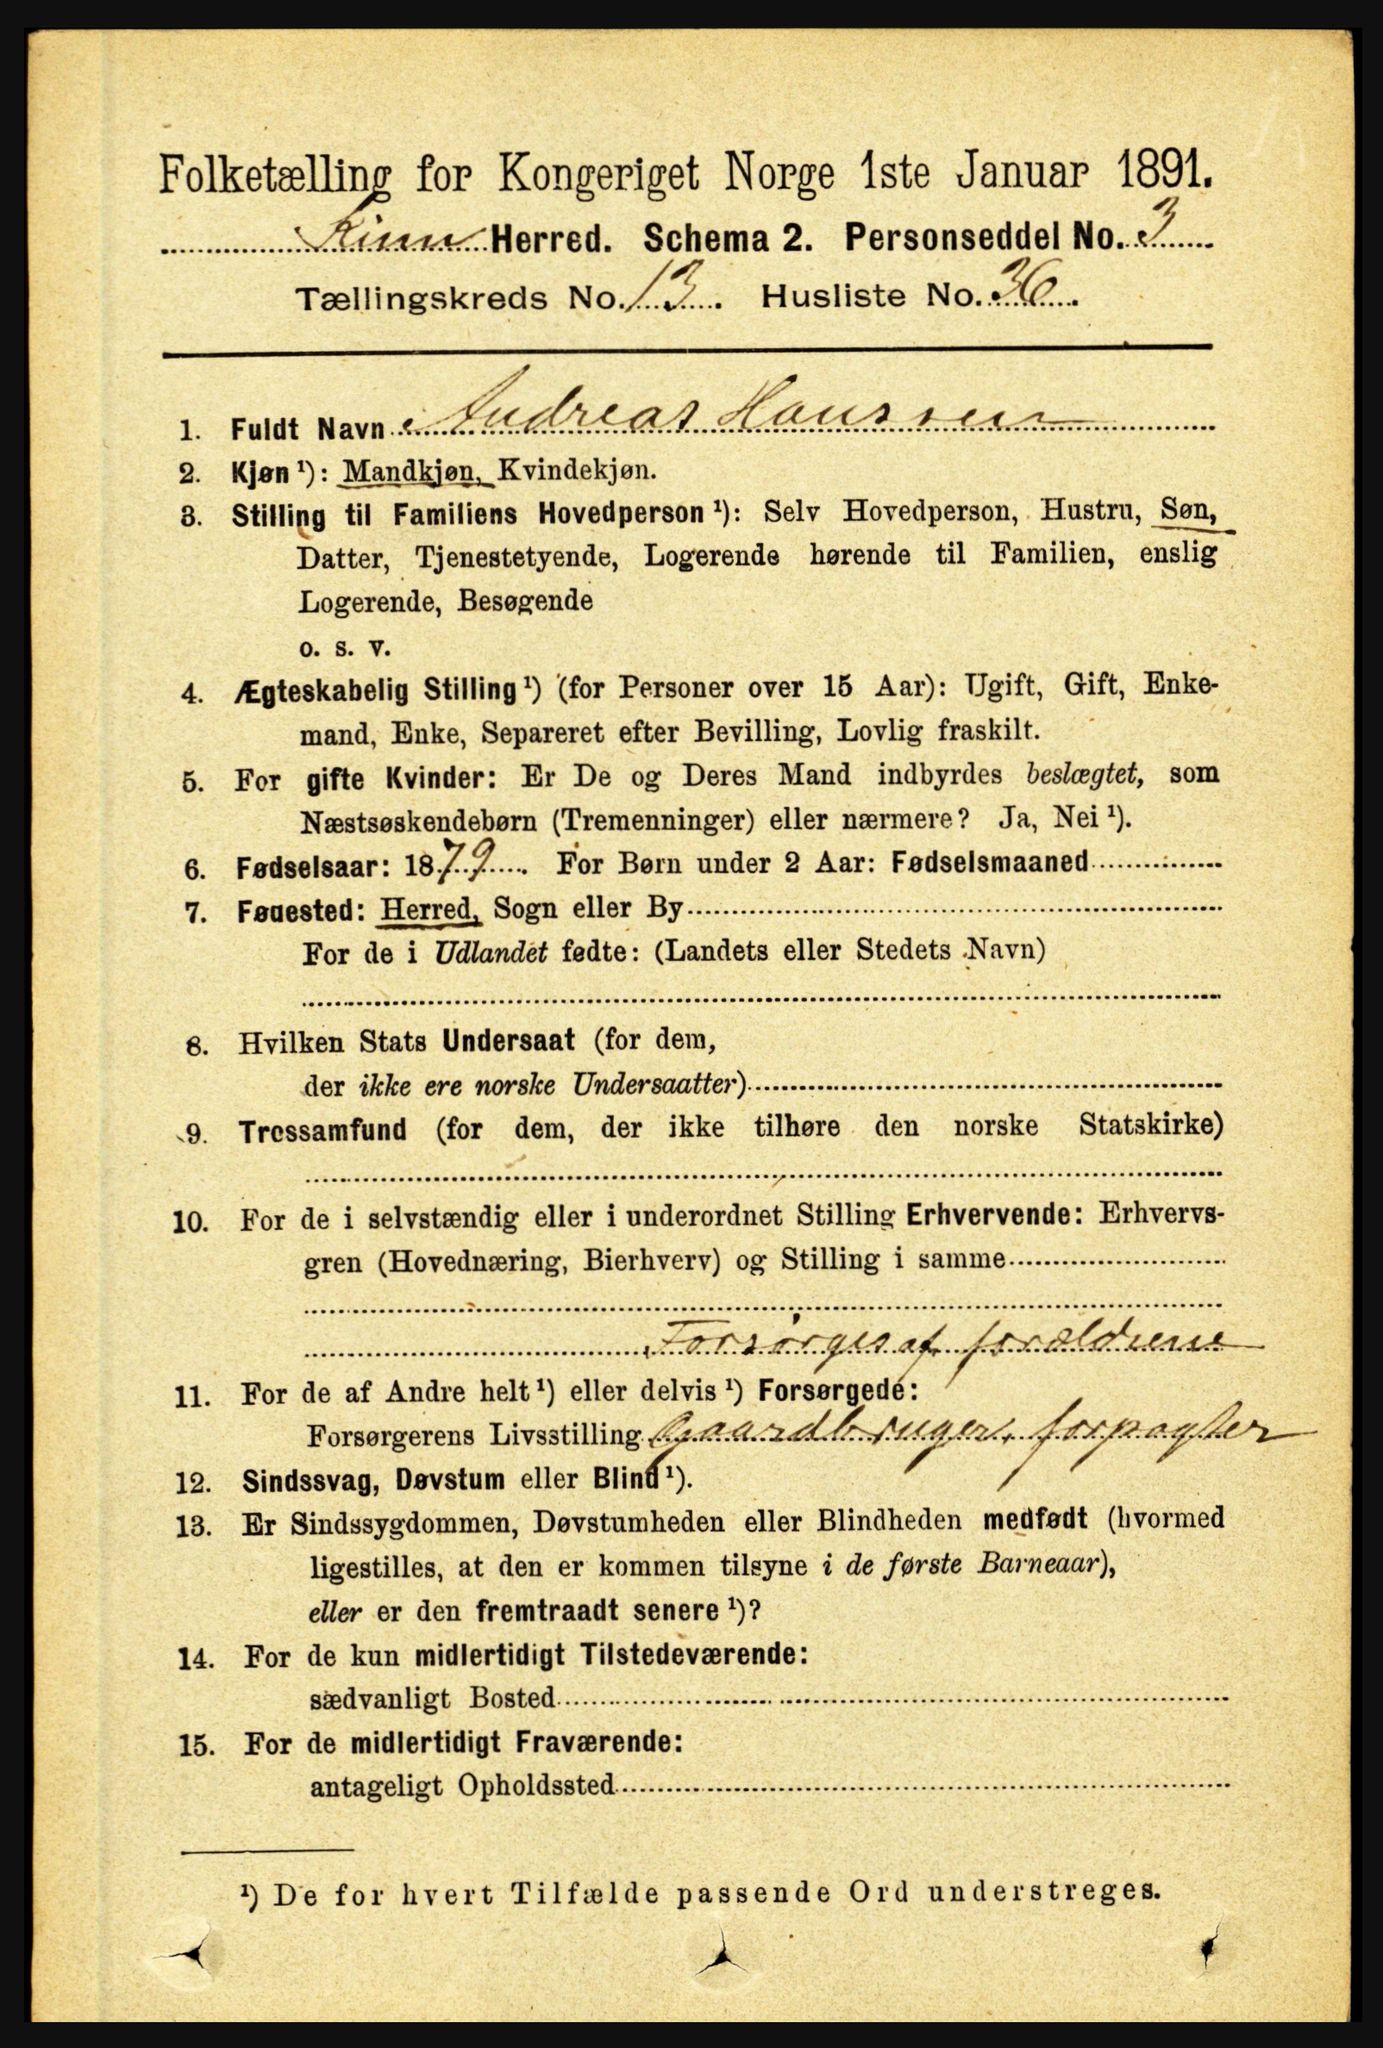 Folketælling for Kongeriget Norge 1ste Januar 1891.
Kinn Herred. Schema 2. Personseddel No. 3
Tællingskreds No. 13. Husliste No. 36.
1. Fuldt Navn Andreas Hanssen
2. Kjøn ¹): Mandkjøn, Kvindekjøn.
3. Stilling til Familiens Hovedperson ¹): Selv Hovedperson, Hustru, Søn,
Datter, Tjenestetyende, Logerende hørende til Familien, enslig
Logerende, Besøgende
o. s. v.
4. Ægteskabelig Stilling ¹) (for Personer over 15 Aar): Ugift, Gift, Enke-
mand, Enke, Separeret efter Bevilling, Lovlig fraskilt.
5. For gifte Kvinder: Er De og Deres Mand indbyrdes beslægtet, som
Næstsøskendebørn (Tremenninger) eller nærmere? Ja, Nei ¹).
6. Fødselsaar: 1879. For Børn under 2 Aar: Fødselsmaaned
7. Fødested: Herred, Sogn eller By
For de i Udlandet fødte: (Landets eller Stedets Navn)
8. Hvilken Stats Undersaat (for dem,
der ikke ere norske Undersaatter)
9. Trossamfund (for dem, der ikke tilhøre den norske Statskirke)
10. For de i selvstændig eller i underordnet Stilling Erhvervende: Erhvervs-
gren (Hovednæring, Bierhverv) og Stilling i samme
Forsørges af forældrene
11. For de af Andre helt ¹) eller delvis ¹) Forsørgede:
Forsørgerens Livsstilling Gaardbruger, forpagter
12. Sindssvag, Døvstum eller Blind ¹).
13. Er Sindssygdommen, Døvstumheden eller Blindheden medfødt (hvormed
ligestilles, at den er kommen tilsyne i de første Barneaar),
eller er den fremtraadt senere ¹)?
14. For de kun midlertidigt Tilstedeværende:
sædvanligt Bosted
15. For de midlertidigt Fraværende:
antageligt Opholdssted
¹) De for hvert Tilfælde passende Ord understreges.